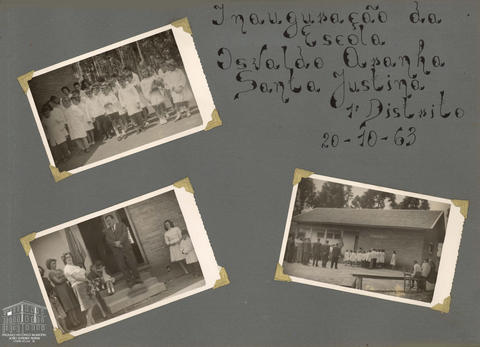 Inauguração da
Escola
Osvaldo Aranha
Santa Justina
1º Distrito
20-10-63